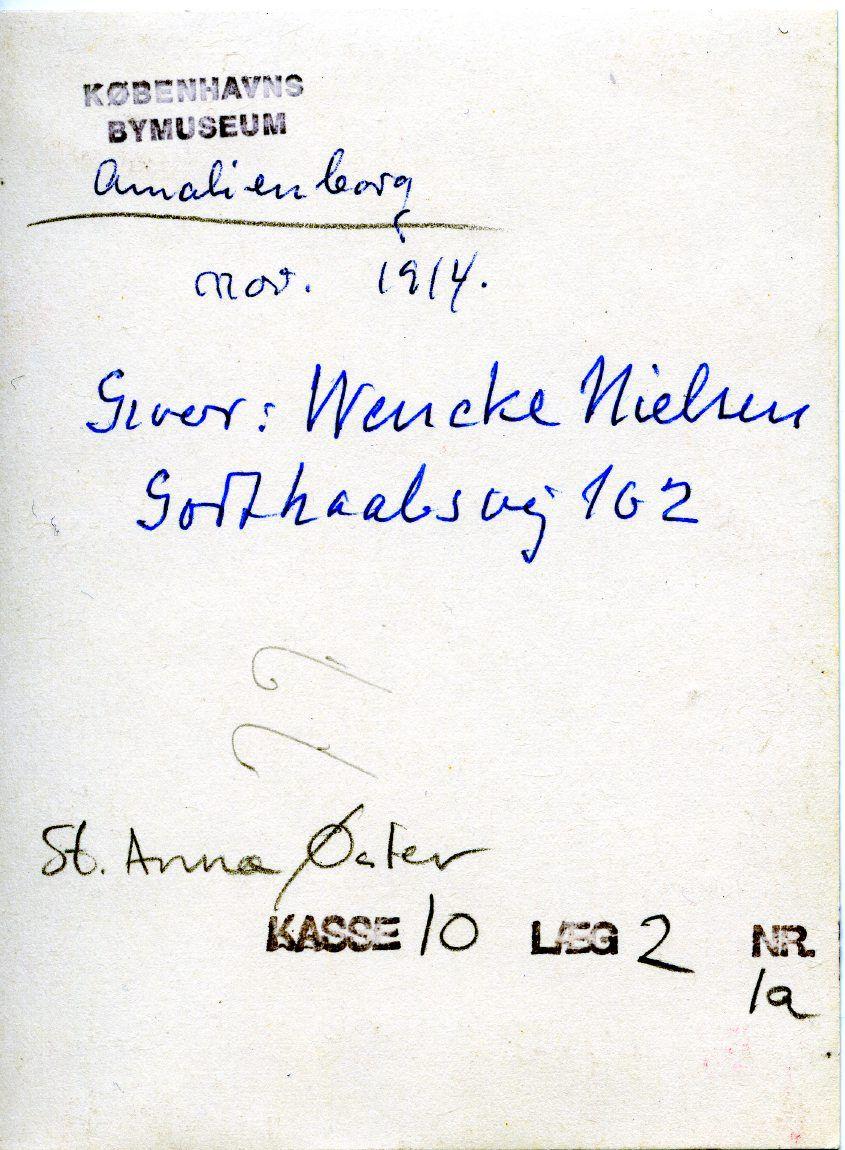 KØBENHAVNS
BYMUSEUM
Amalienborg
nov. 1914.
Giver: Wencke Nielsen
Godthaabsvej 102
St. Anna Øster
KASSE 10 LÆG 2 NR.
1a